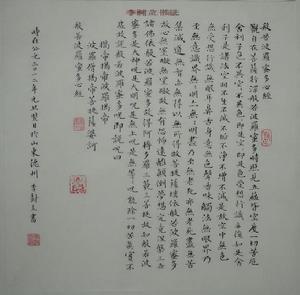 般若波羅蜜多心經
觀自在菩薩行深般若波羅蜜多時照見五蘊皆空度一切苦厄
舍利子色不異空空不異色色即是空空即是色受想行識亦復如是舍
利子是諸法空相不生不滅不垢不淨不增不減是故空中無色
無受想行識無眼耳鼻舌身意無色聲香味觸法無眼界乃
至無意識界無無明亦無無明盡乃至無老死亦無老死盡無苦
集滅道無智亦無得以無所得故菩提薩埵依般若波羅蜜多
故心無罣礙無罣礙故無有恐怖遠離顛倒夢想究竟涅槃三世
諸佛依般若波羅蜜多故得阿耨多羅三藐三菩提故知般若波羅
蜜多是大神呪是大明呪是無上呪是無等等呪能除一切苦真實不
虛故說般若波羅蜜多呪即說呪曰
揭帝揭帝般羅揭帝
波羅僧揭帝菩提薩婆訶
般若波羅蜜多心經
時在公元二〇一二年元月 於山東德州 李 書